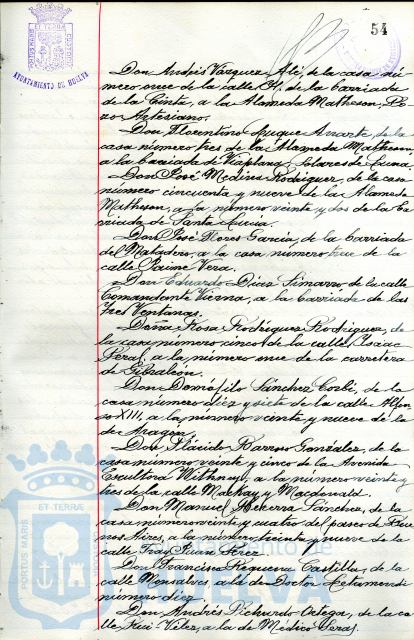 54
AYUNTAMIENTO DE HUELVA
PORTUS MARIS
ET TERRÆ
CUSTODIA
Don Andrés Vázquez Alé, de la casa nú
mero once de la calle H, de la barriada
de la Cinta, a la Alameda Matheson, Po
zo Artesiano.
Don Florentino Luque Anarte, de la
casa número tres de la Alameda Matheson,
a la barriada de Viaplana, Solares de Luna.
Don José Medina Rodríguez, de la casa
número cincuenta y nueve de la Alameda
Matheson, a la número veinte y dos de la ba
rriada de Santa Lucía.
Don José Flores García, de la barriada
del Matadero, a la casa número trece de la
calle Jaime Vera.
Don Eduardo Díaz Simarro, de la calle
Comandante Vierna, a la barriada de las
Tres Ventanas.
Doña Rosa Rodríguez Rodríguez, de
la casa número cinco de la calle Isaac
Peral, a la número once de la carretera
de Gibraleón.
Don Domófilo Sánchez Corbí, de la
casa número diez y siete de la calle Alfon
so XIII, a la número veinte y nueve de la
de Aragón.
Don Plácido Barroso González, de la
casa número veinte y cinco de la Avenida
Escultora Withney, a la número veinte y
tres de la calle Mackay y Macdonald.
Don Manuel Becerra Sánchez, de la
casa número veinte y cuatro del paseo de Bue
nos Aires, a la número treinta y nueve de la
calle Fray Juan Pérez.
Don Francisco Requena Castilla, de la
calle Monsalves a la de Doctor Letamendi
número diez.
Don Andrés Pichardo Ortega, de la ca
lle Puei-Vélez, a la de Médico Seras.
Ayuntamiento de
HUELVA